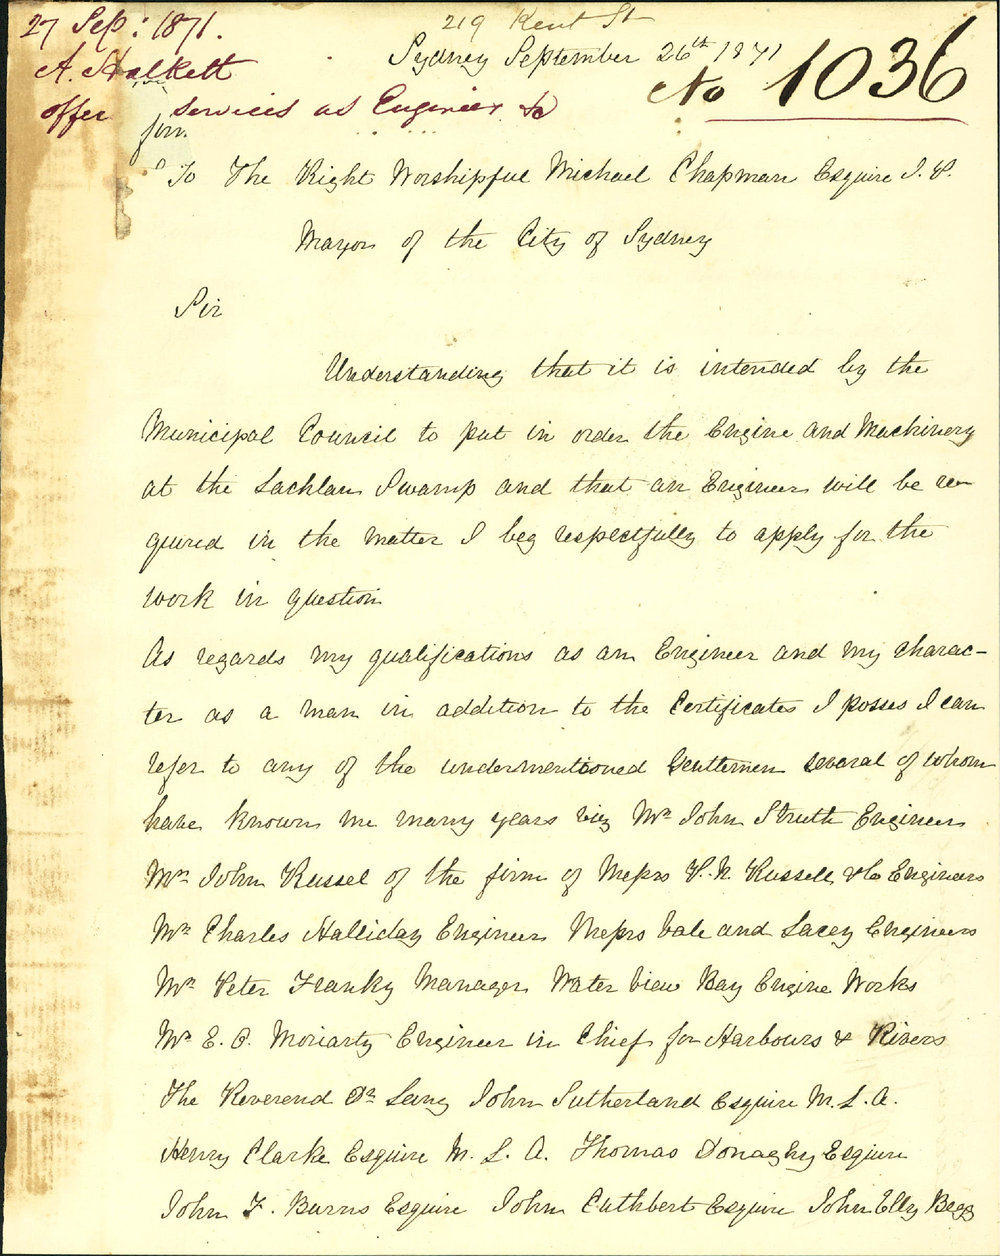 27 Sep: 1871.
A. Halkett
offer services as Engineer &c
219 Kent St
Sydney September 26th 1871
No 1036
To The Right Worshipful Michael Chapman Esquire J. P.
Mayor of the City of Sydney
Sir
Understanding that it is intended by the
Municipal Council to put in order the Engine and Machinery
at the Lachlan Swamp and that an Engineer will be re-
quired in the matter I beg respectfully to apply for the
work in question
As regards my qualifications as an Engineer and my charac-
ter as a man in addition to the Certificates I posses I can
refer to any of the undermentioned Gentlemen several of whom
have known me many years viz Mr John Struth Engineer
Mr John Russel of the firm of Messrs P. N. Russell & Co Engineers
Mr Charles Halliday Engineer Messrs Vale and Lacey Engineers
Mr Peter Franky Manager Water View Bay Engine Works
Mr E. O. Moriarty Engineer in Chief for Harbours & Rivers
The Reverend Dr Lang John Sutherland Esquire M. L. A.
Henry Clarke Esquire M. L. A. Thomas Donaghy Esquire
John F. Burns Esquire John Cuthbert Esquire John Elly Begg